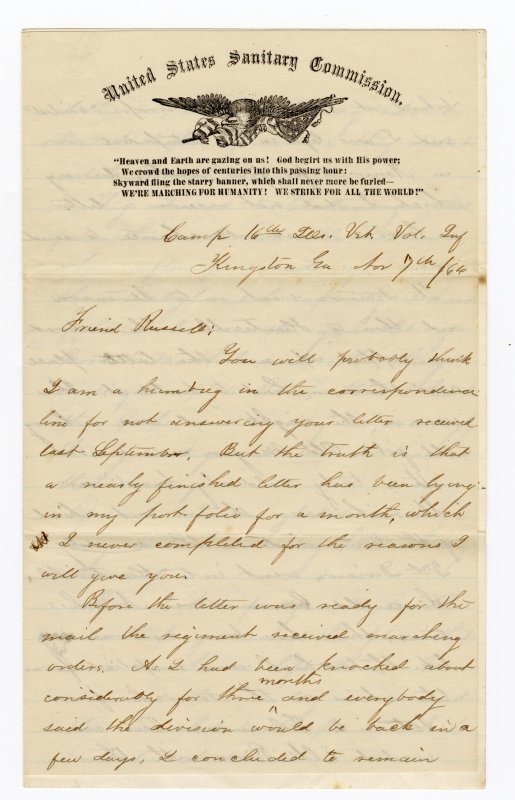 United States Sanitary Commission.
"Heaven and Earth are gazing on us! God begirt us with His power;
We crowd the hopes of centuries into this passing hour:
Skyward fling the starry banner, which shall never more be furled—
WE'RE MARCHING FOR HUMANITY! WE STRIKE FOR ALL THE WORLD!"
Camp 16th Ills. Vet. Vol. Inf
Kingston Ga Nov 7th /64
Friend Russell;
You will probably think
I am a humbug in the correspondence
line for not answering your letter received
last September. But the truth is that
a nearly finished letter has been lying
in my port folio for a month, which
I never completed for the reasons I
will give you.
Before the letter was ready for the
mail the regiment received marching
orders. As I had been knocked about
considerably for three months and everybody
said the division would be back in a
few days, I concluded to remain